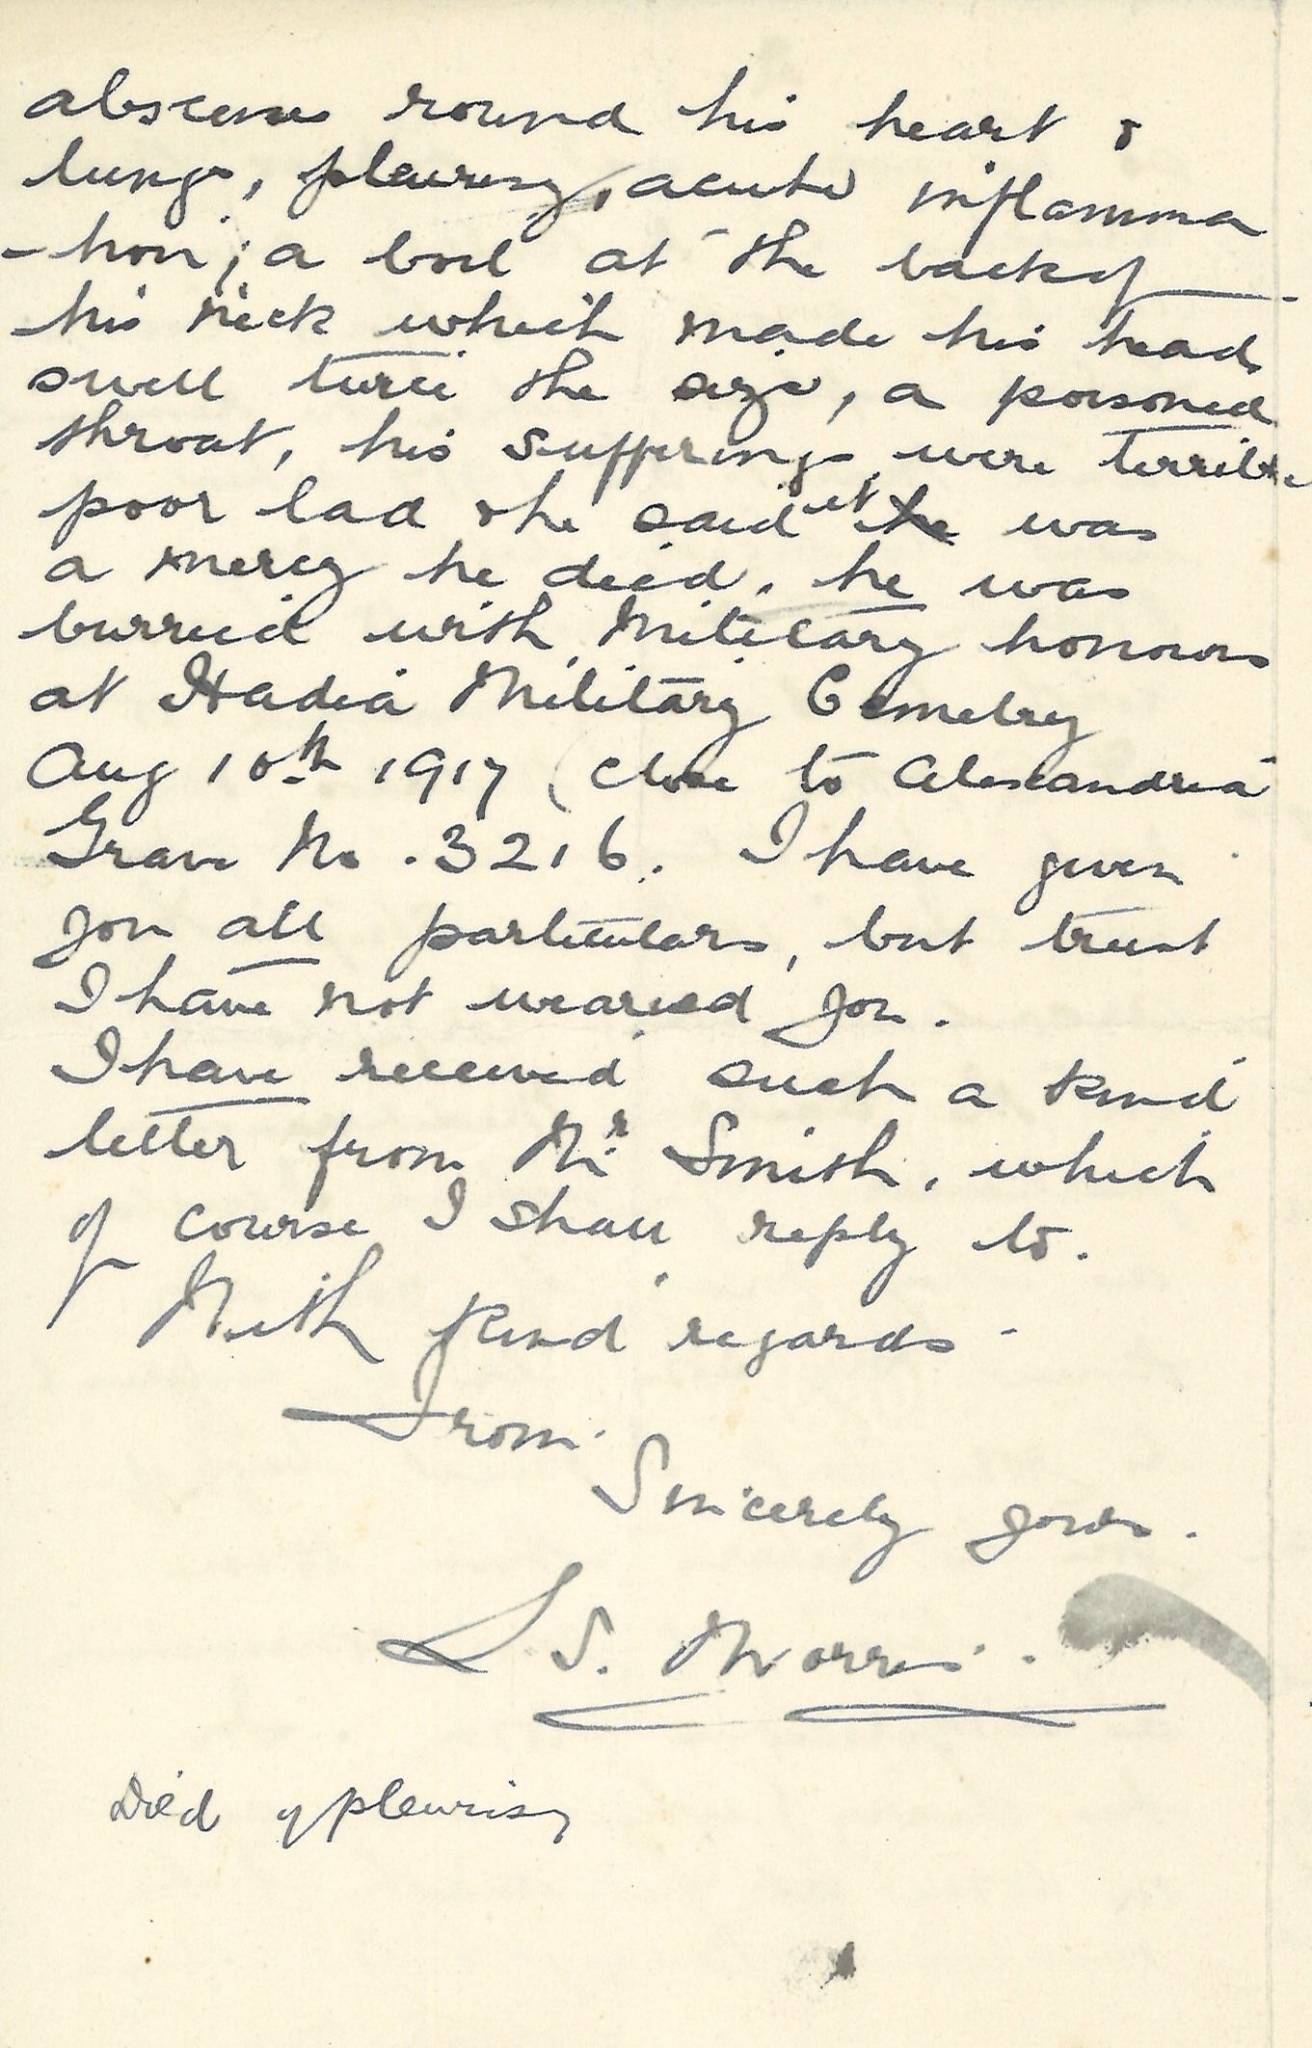 abscesses round his heart &
lungs, pleuresy, acute inflamma
-tion; a boil at the back of
his neck which made his head
swell twice the size, a poisoned
throat, his sufferings were terrible
poor lad & he said it he was
a mercy he died. he was
burried with Military honours
at Hadia Military Cemetry
Aug 10th 1917 (close to Alexandria
Grave No. 3216. I have given
you all particulars, but trust
I have not wearied you.
I have received such a kind
letter from Mr Smith, which
of course I shall reply to.
With kind regards -
From
Sincerely yours.
L S. Morris.
Died of pleurisy